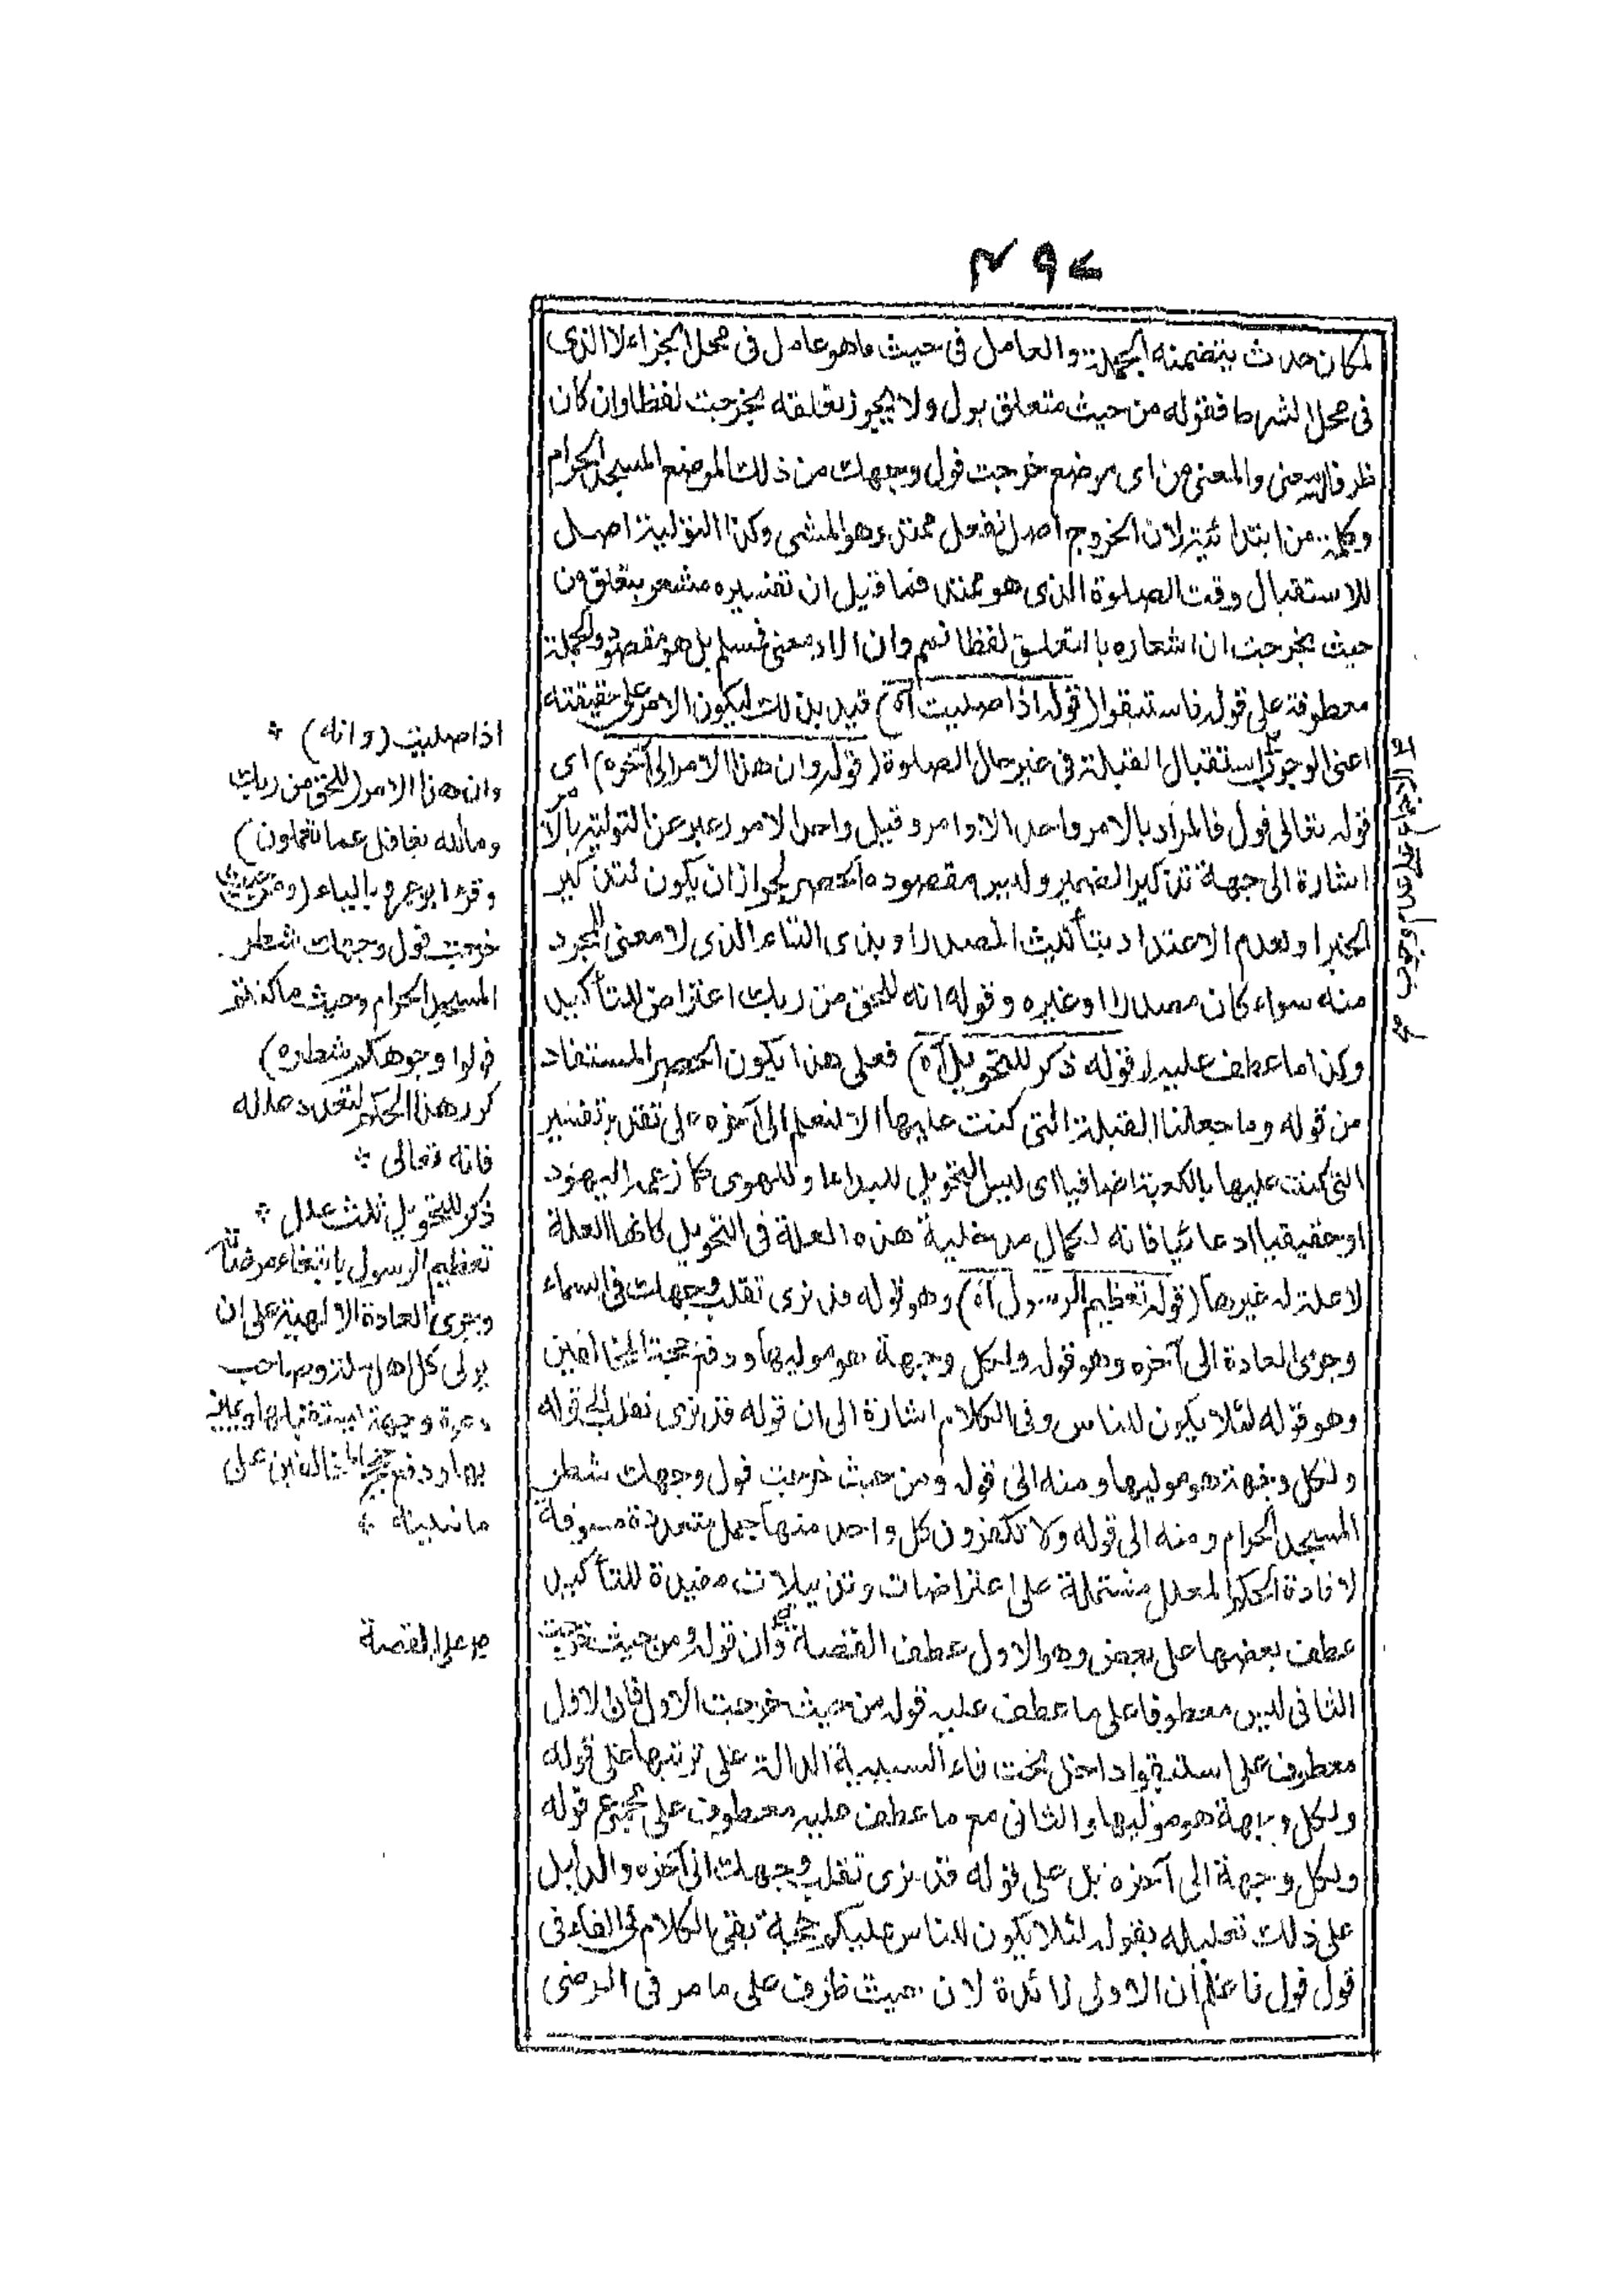 لمكان حدث يتضمنه الجملة والعامل فى حيث ما هو عامل فى محل الجزاء لا الذى
فى محل الشرط فقوله من حيث متعلق بول ولا يجوز تعلقه بخرجت لفظا وان كان
ظرفا له معنى والمعنى من اى موضع خرجت فول وجهك من ذلك الموضع المسجد الحرام
وكلمة من ابتدائية لان الخروج اصل لفعل ممتد وهو المشى وكذا التولية اصل
للاستقبال وقت الصلوة الذى هو ممتد فما قيل ان تقديره مشعر بتعلق من
حيث بخرجت ان اشعاره بالتعلق لفظا نعم وان اراد معنى فمسلم بل هو مقصود والجملة
معطوفة على قوله فاستبقوا (قوله اذا صليت آه) قيد بذلك ليكون الامر على حقيقته
اعنى الوجوب استقبال القبلة فى غير حال الصلوة (قوله وان هذا الامر الى آخره) اى
قوله تعالى فول فالمراد بالامر واحد الاوامر وقيل واحد الامور عبر عن التولية
اشارة الى جهة تذكير الضمير وليس مقصوده الحصر لجواز ان يكون لتذكير
الخبر او لعدم الاعتداد بتأنيث المصدر او بذى التاء الذى لا معنى للمجرد
منه سواء كان مصدرا او غيره وقوله انه للحق من ربك اعتراض للتأكيد
وكذا ما عطف عليه (قوله ذكر للتحويل آه) فعلى هذا يكون الحصر المستفاد
من قوله وما جعلنا القبلة التى كنت عليها الا لنعلم الى آخره على تقدير تفسير
التى كنت عليها بالكعبة اضافيا اى ليس التحويل للبداء او للهوى كما زعم اليهود
او حقيقيا ادعائيا فانه لكمال مدخلية هذه العلة فى التحويل كانها العلة
لا علة له غيرها (قوله تعظيم الرسول آه) وهو قوله قد نرى تقلب وجهك فى السماء
وجرى العادة الى آخره وهو قوله ولكل وجهة هو موليها ودفع حجة المخالفين
وهو قوله لئلا يكون للناس وفى الكلام اشارة الى ان قوله قد نرى تقلب الى قوله
ولكل وجهة هو موليها ومنه الى قوله ومن حيث خرجت فول وجهك شطر
المسجد الحرام ومنه الى قوله ولا تكفرون كل واحد منها جمل متعددة مسوقة
لافادة الحكم المعلل مشتملة على اعتراضات وتذييلات مفيدة للتأكيد
عطف بعضها على بعض وهو الاول عطف القصة وان قوله ومن حيث خرجت
الثانى ليس معطوفا على ما عطف عليه قوله من حيث خرجت الاول فان الاول
معطوف على استبقوا داخل تحت فاء السببية الدالة على ترتبها على قوله
ولكل وجهة هو موليها والثانى مع ما عطف عليه معطوف على مجموع قوله
ولكل وجهة الى آخره بل على قوله قد نرى تقلب وجهك الى آخره والدليل
على ذلك تعليله بقوله لئلا يكون للناس عليكم حجة بقى الكلام فى الفاء فى
قول فول فاعلم ان الاولى زائدة لان حيث ظرف على ما مر فى الرضى
اذا صليت (وانه)
وان هذا الامر (للحق من ربك
وما الله بغافل عما تعملون)
وقرء ابو عمرو بالياء (ومن حيث
خرجت فول وجهك شطر
المسجد الحرام وحيث ما كنتم
فولوا وجوهكم شطره)
كرر هذا الحكم لتعدد علله
فانه تعالى
ذكر للتحويل ثلث علل
تعظيم الرسول بابتغاء مرضاته
وجرى العادة الالهية على ان
يولى كل اهل ملة وصاحب
دعوة وجهة يستقبلها ويتميز
بها ودفع حجج المخالفين على
ما نبينه
على القصة